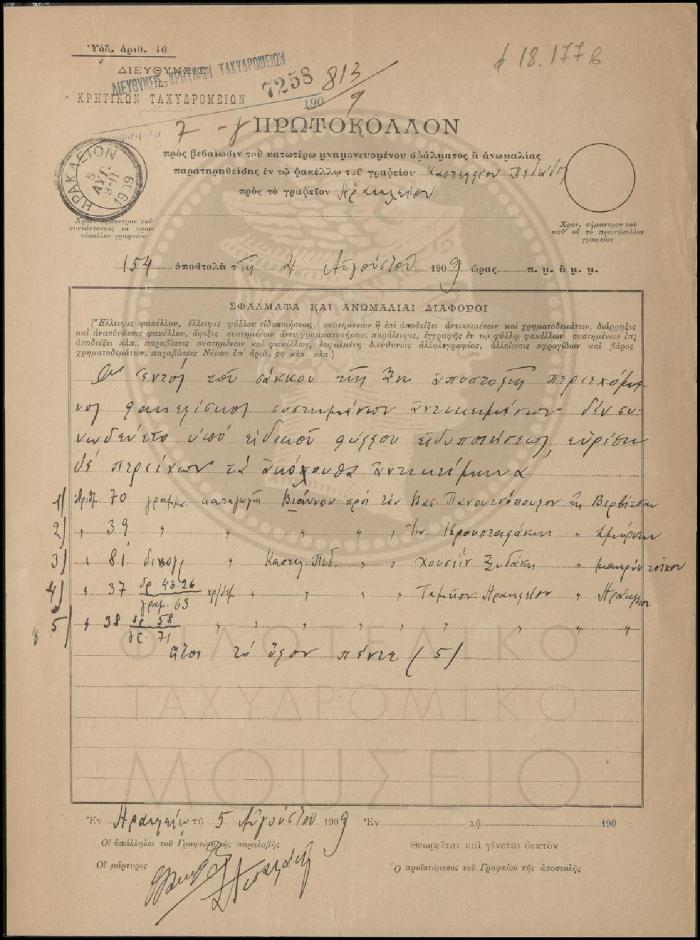 Ὑπόδ. ἀριθ. 16
φ 18.177β
ΔΙΕΥΘΥΝΣΙΣ
ΤΩΝ
ΚΡΗΤΙΚΩΝ ΤΑΧΥΔΡΟΜΕΙΩΝ
ΔΙΕΥΘΥΝΣΙΣ ΚΡΗΤΙΚΩΝ ΤΑΧΥΔΡΟΜΕΙΩΝ
7258 813
190 9
7 -
ΠΡΩΤΟΚΟΛΛΟΝ
πρὸς βεβαίωσιν τοῦ κατωτέρω μνημονευομένου σφάλματος ἢ ἀνωμαλίας
παρατηρηθείσης ἐν τῷ φακέλλῳ τοῦ γραφείου Καστελλίου Πεδιάδος
πρὸς τὸ γραφεῖον Ἡρακλείου
ΗΡΑΚΛΕΙΟΝ
5 ΑΥΓ. 1909
Χρον. σήμαντρον τοῦ
συντάσσοντος τὸ πρω-
τόκολλον γραφείου
Χρον. σήμαντρον τοῦ
καθ' οὗ τὸ πρωτόκολλον
γραφείου
154 ἀποστολὴ τῆς 4 Αὐγούστου 1909 ὥρας π. μ. ἢ μ. μ.
ΣΦΑΛΜΑΤΑ ΚΑΙ ΑΝΩΜΑΛΙΑΙ ΔΙΑΦΟΡΟΙ
(Ἔλλειψις φακέλλου, ἔλλειψις φύλλου εἰδοποιήσεως, συστημένων ἢ ἐπὶ ἀποδείξει ἀντικειμένων καὶ χρηματοδεμάτων, διάρρηξις
καὶ ἀνασύνθεσις φακέλλου, ἄφιξις συστημένου ἀντιγραμματοσήμου, παράλειψις, ἐγγραφῆς ἐν τῷ φύλλῳ φακέλλων, συστημένων ἐπ'
ἀποδείξει κλπ., παραβίασις συστημένων καὶ φακέλλων, ἐσφαλμένη διεύθυνσις ἀλληλογραφίας, ἀλλοίωσις σφραγίδων καὶ βάρος
χρηματοδεμάτων, παραβάσεις Νόμου ὑπ' ἀριθ. 90 κλπ. κλπ.)
Ὁ ἐντὸς τοῦ σάκκου τῆς ἀποστολῆς περιεχόμε-
νος φακελίσκος συστημένων ἀντικειμένων δὲν συ-
νωδεύετο ὑπὸ εἰδικοῦ φύλλου εἰδοποιήσεως, εὑρέθη
δὲ περιέχων τὰ ἀκόλουθα ἀντικείμενα
1) Ἀριθ. 70 γραμμ. καταγωγῆς Βιάννου πρὸς τὸν Βασ. Παναυτσόπουλον
2) " 39 " " " " " Ἰω. " Σμύρνην
3) " 81 " Καστελ. Πεδ. " " Χουσεῒν " μακρὺν τοῖχον
4) " 37 δρ 43.26 " " " " Ταμεῖον Ἡρακλείου " Ἡράκλειον
γραμ. 63
5) " 38 δρ 58 " " " " " " " "
γρ. 71
ἤτοι τὸ ὅλον πέντε (5)
ΦΙΛΟΤΕΛΙΚΟ
ΤΑΧΥΔΡΟΜΙΚΟ
ΜΟΥΣΕΙΟ
Ἐν Ἡρακλείῳ τῇ 5 Αὐγούστου 1909 Ἐν τῇ 190
Οἱ ὑπάλληλοι τοῦ Γραφείου τῆς παραλαβῆς
Θεωρεῖται καὶ γίνεται δεκτὸν
Οἱ μάρτυρες
Ὁ προϊστάμενος τοῦ Γραφείου τῆς ἀποστολῆς